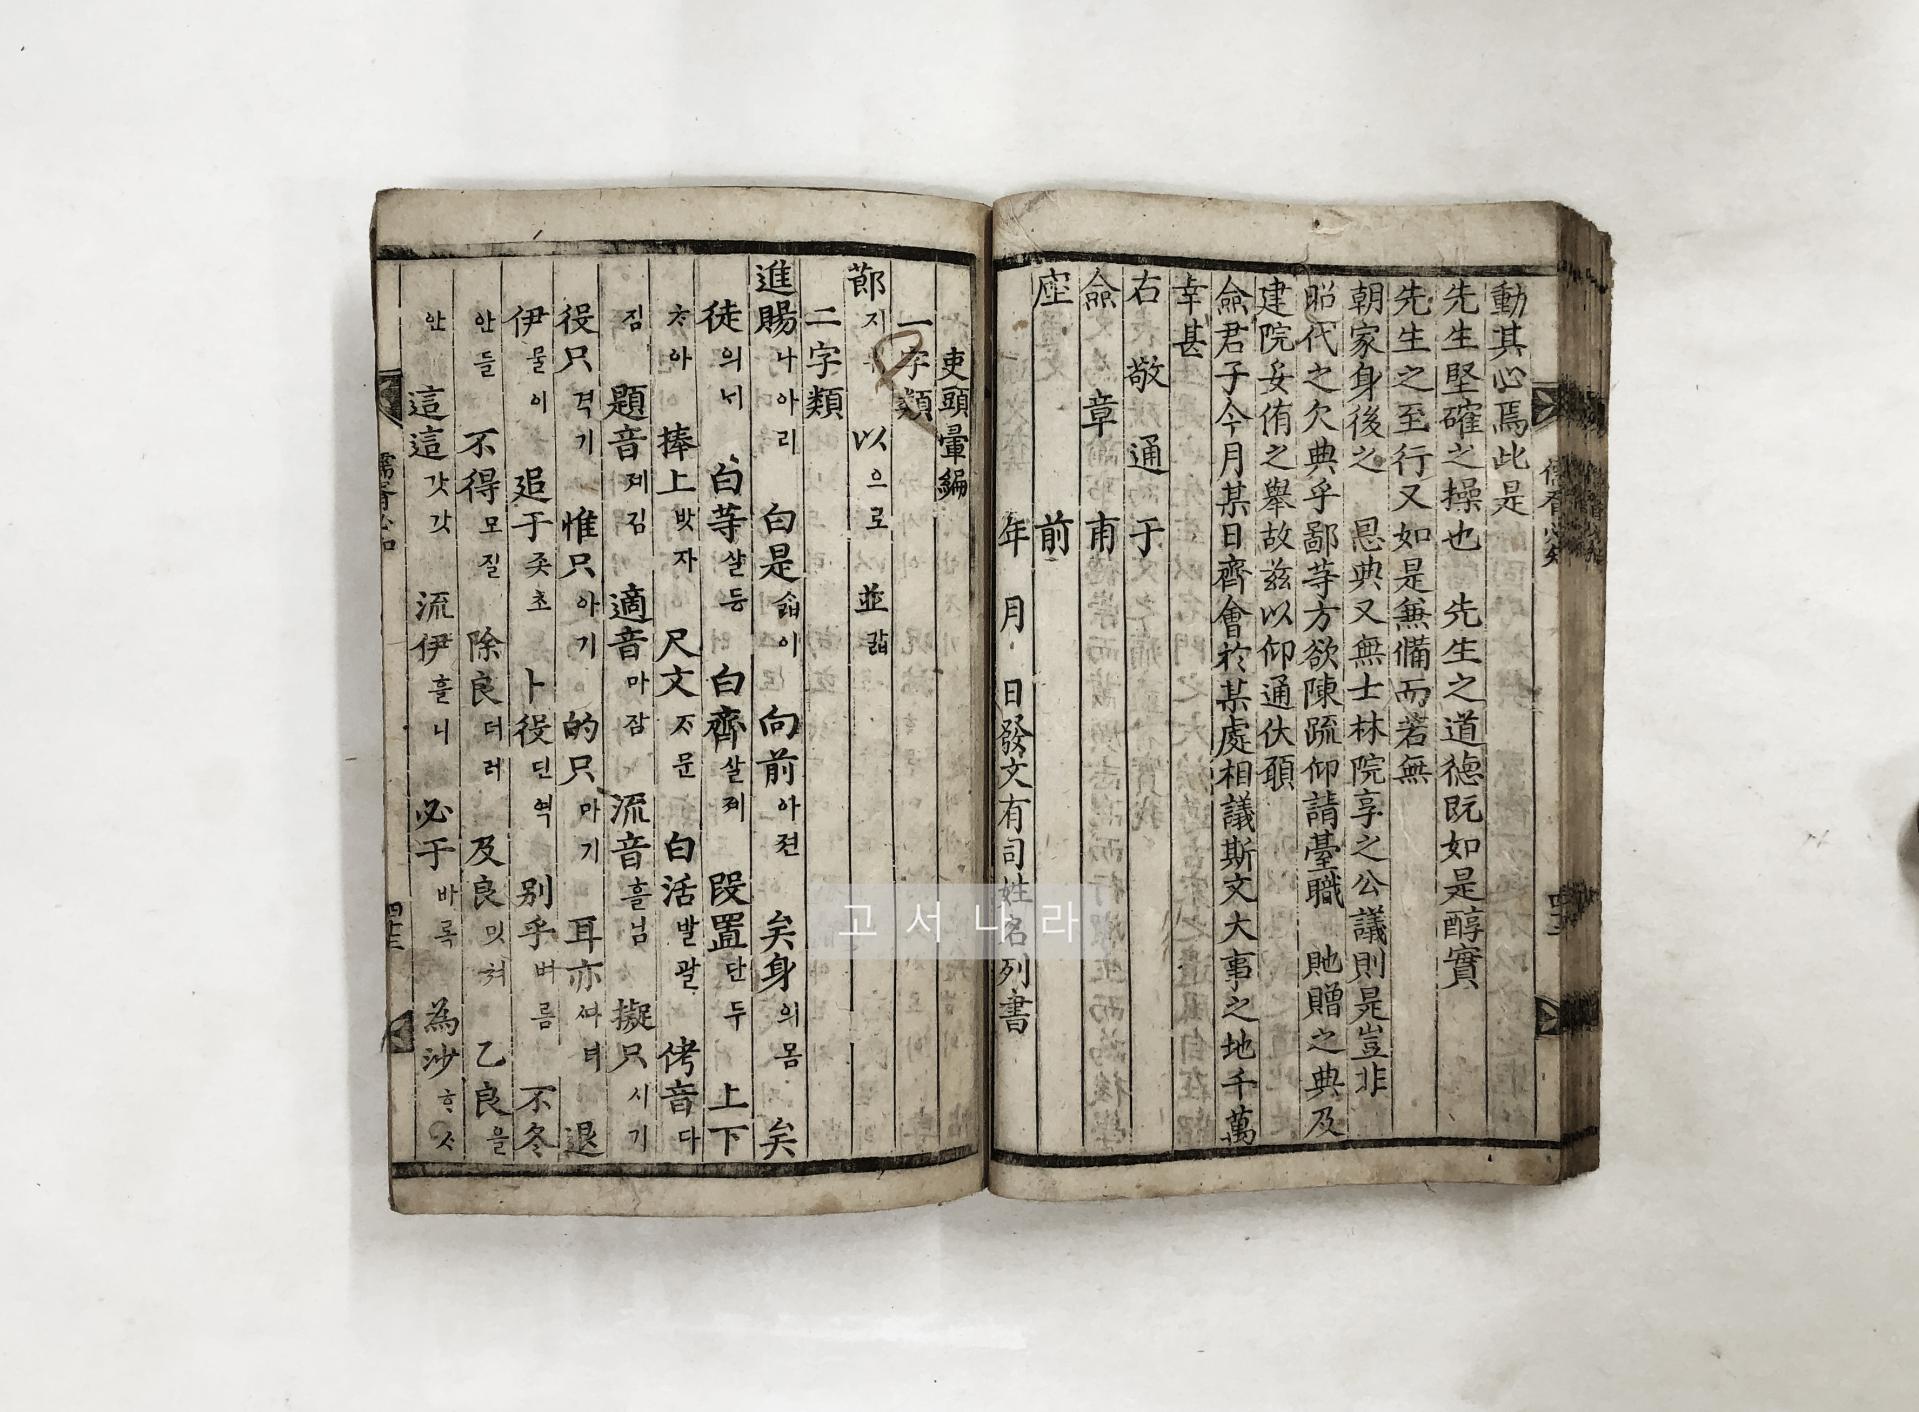 動其心焉此是
先生堅確之操也 先生之道德旣如是醇實
先生之至行又如是兼備而若無
朝家身後之 恩典又無士林院享之公議則是豈非
昭代之欠典乎鄙等方欲陳疏仰請臺職 貤贈之典及
建院妥侑之擧故玆以仰通伏願
僉君子今月某日齊會於某處相議斯文大事之地千萬
幸甚
右敬通于
僉章甫
座前
年 月 日發文有司姓名列書
吏頭彙編
一字類
節 지 以 으로 並 ᄀᆞᆲ
二字類
進賜 나아리 白是 ᄉᆞᆲ이 向前 아젼 矣身 의몸 矣
徒 의ᄂᆡ 白等 ᄉᆞᆲ등 白齊 살졔 段置 단두 上下
ᄎᆞ아 捧上 밧자 尺文 ᄌᆞ문 白活 발괄 侤音 다
짐 題音 졔김 適音 마잠 流音 흘님 擬只 시기
役只 격기 惟只 아기 的只 마기 耳亦 ᄯᆞ녀 退
伊 물이 追于 좃초 卜役 딘역 別乎 벼름 不冬
안들 不得 모질 除良 더러 及良 밋쳐 乙良 을
안 這這 갓갓 流伊 흘니 必于 바록 爲沙 ᄒᆞᄉᆞ
儒胥必知
四十三
고서나라